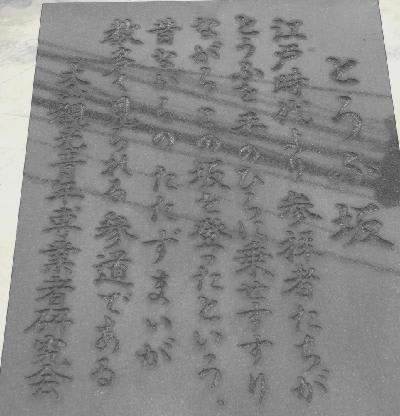 とうふ坂
江戸時代より参拝者たちが
とうふを手のひらに乗せすすり
ながらこの坂を登ったという。
昔ながらのたたずまいが
数多く見られる参道である
天台観光青年事業者研究会